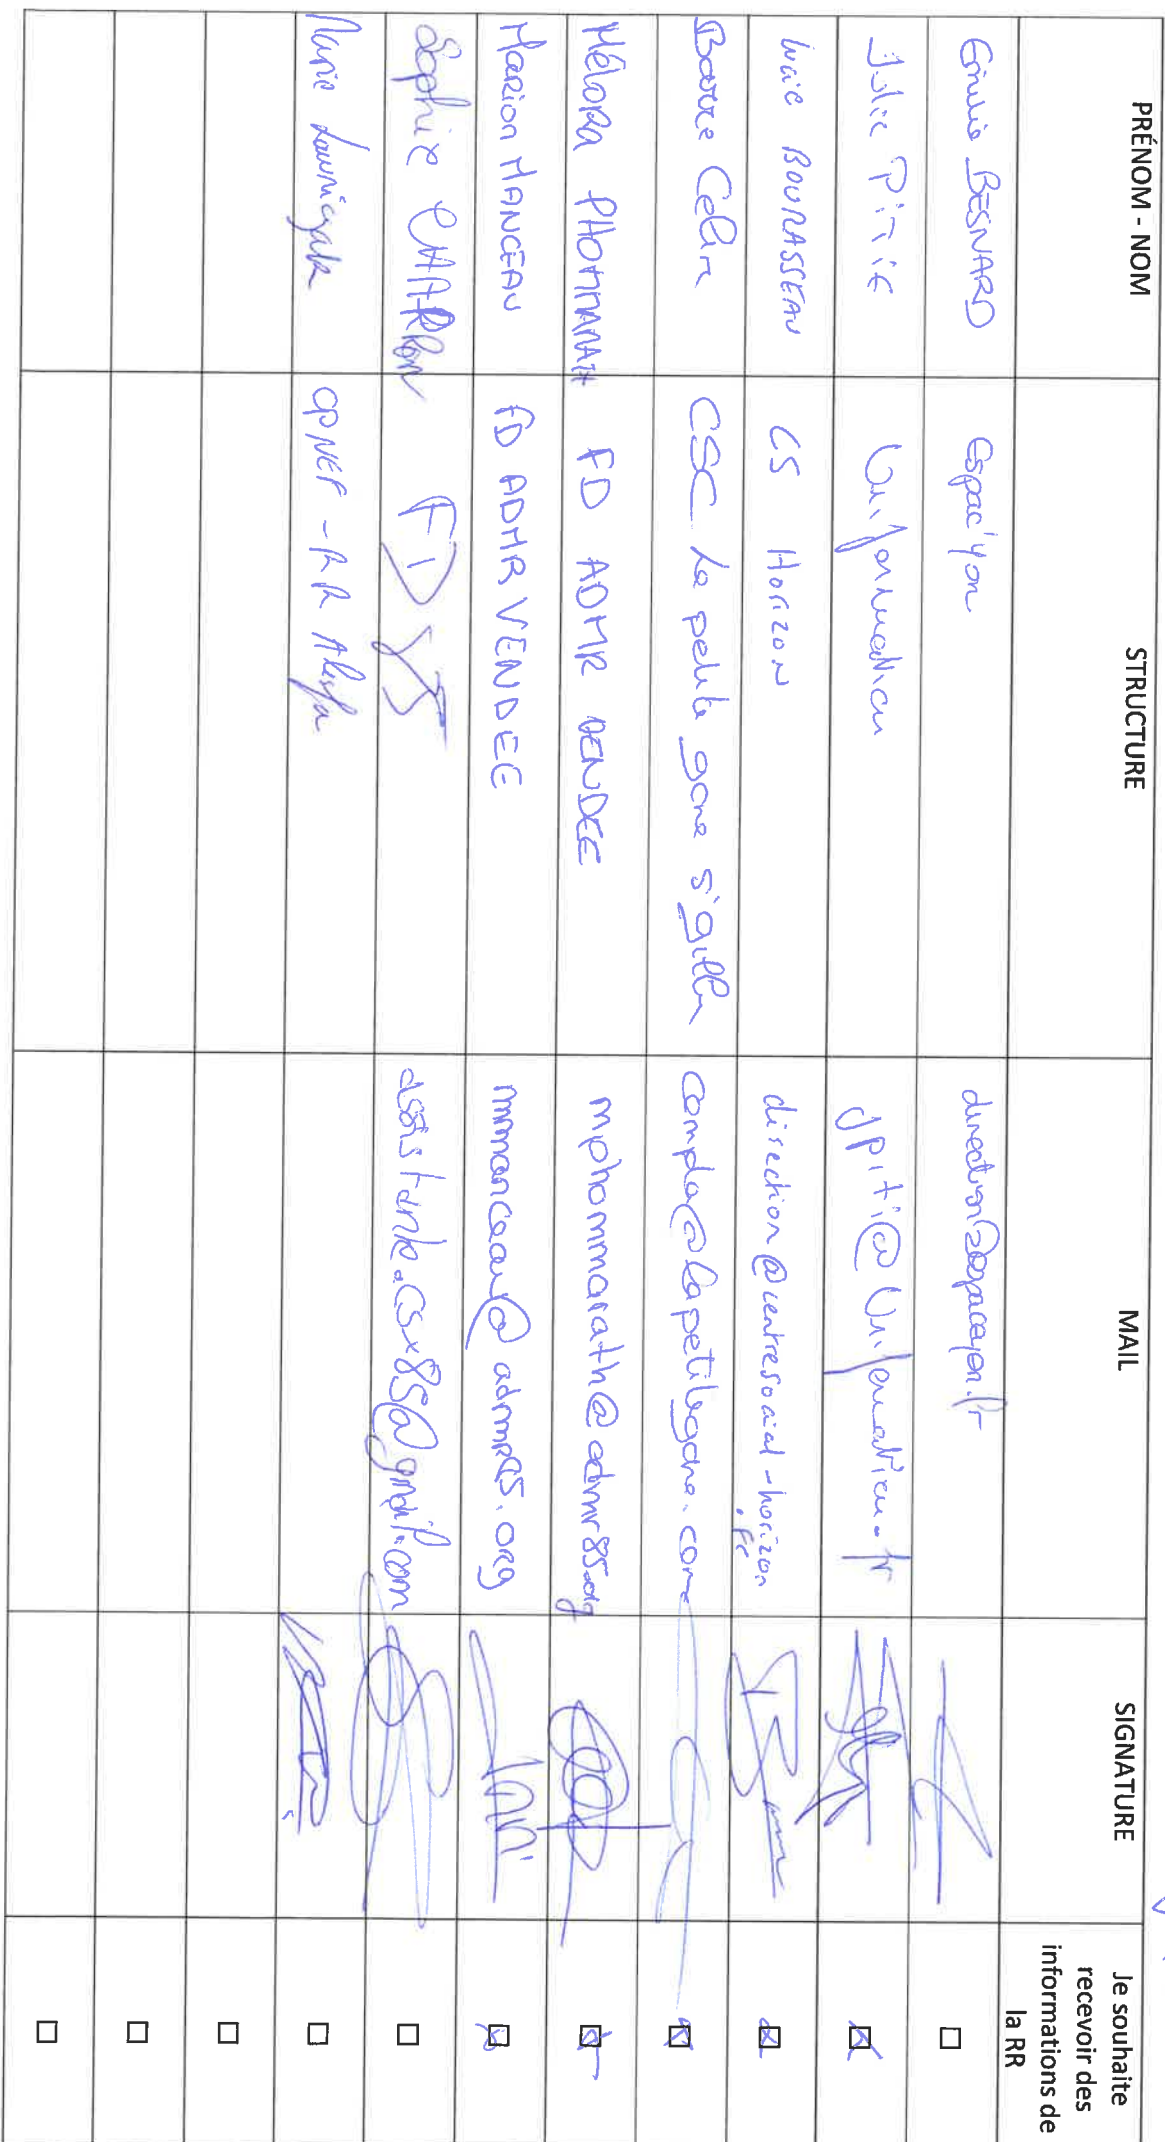 PRÉNOM - NOM STRUCTURE MAIL SIGNATURE Je souhaite recevoir des informations de la RR
Emilie BESNARD Espac'yon direction@espaceyon.fr ☐
Julie Pitié Uniformation jpiti@uniformation.fr ☒
Lucie BOURASSEAU CS Horizon direction@centresocial-horizon.fr ☒
Barre Celine CSC La petite gare s'gilles compta@lapetitegare.com ☒
Mélora PHOMMARATH FD ADMR VENDEE mphommarath@admr85.org ☒
Marion MANCEAU FD ADMR VENDEE mmanceau@admr85.org ☒
Sophie CHARRON assistante.csx85@gmail.com ☐
Marie CPNEF - RR Alisfa ☐
☐
☐
☐